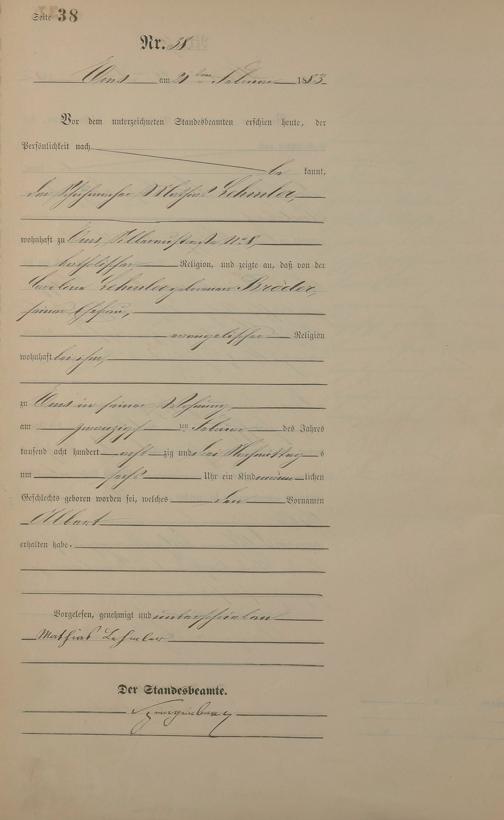 Seite 38
Nr. 38
Ems am 21 ten Februar 1883
Vor dem unterzeichneten Standesbeamten erschien heute, der
Persönlichkeit nach
be kannt,
der Schuhmacher Mathias Lehmler,
wohnhaft zu Ems, No 8,
katholischer Religion, und zeigte an, daß von der
Carolina Lehmler geborenen Bröder,
seiner Ehefrau,
evangelischer Religion
wohnhaft bei ihm,
zu Ems in seiner Wohnung,
am zwanzigsten ten Februar des Jahres
tausend acht hundert acht zig und drei Nachmittags
um sechs Uhr ein Kind männ lichen
Geschlechts geboren worden sei, welches den Vornamen
Albert
erhalten habe.
Vorgelesen, genehmigt und unterschrieben
Mathias Lehmler
Der Standesbeamte.